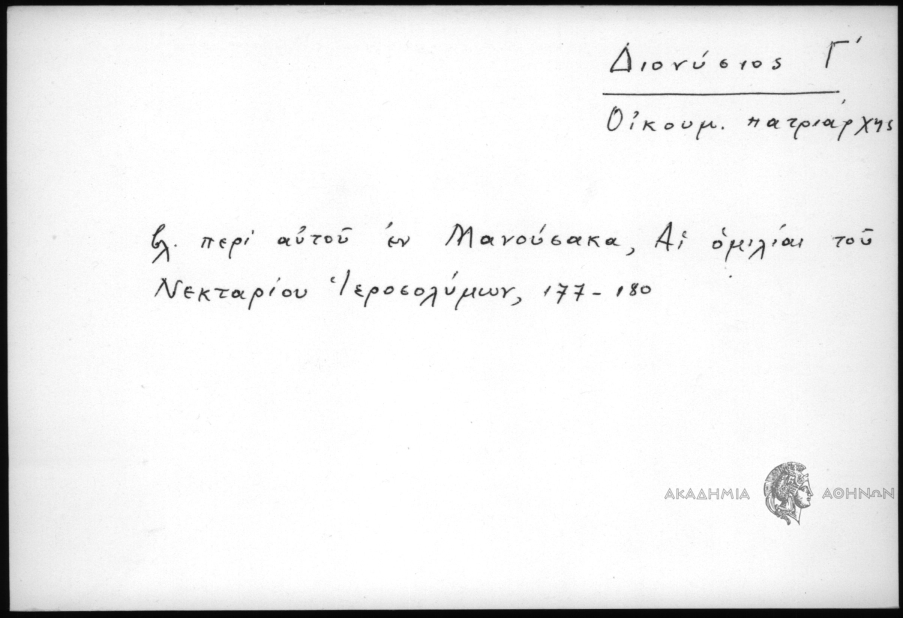 Διονύσιος Γ΄
Οἰκουμ. πατριάρχης
βλ. περὶ αὐτοῦ ἐν Μανούσακα, Αἱ ὁμιλίαι τοῦ
Νεκταρίου Ἱεροσολύμων, 177-180
ΑΚΑΔΗΜΙΑ ΑΘΗΝΩΝ